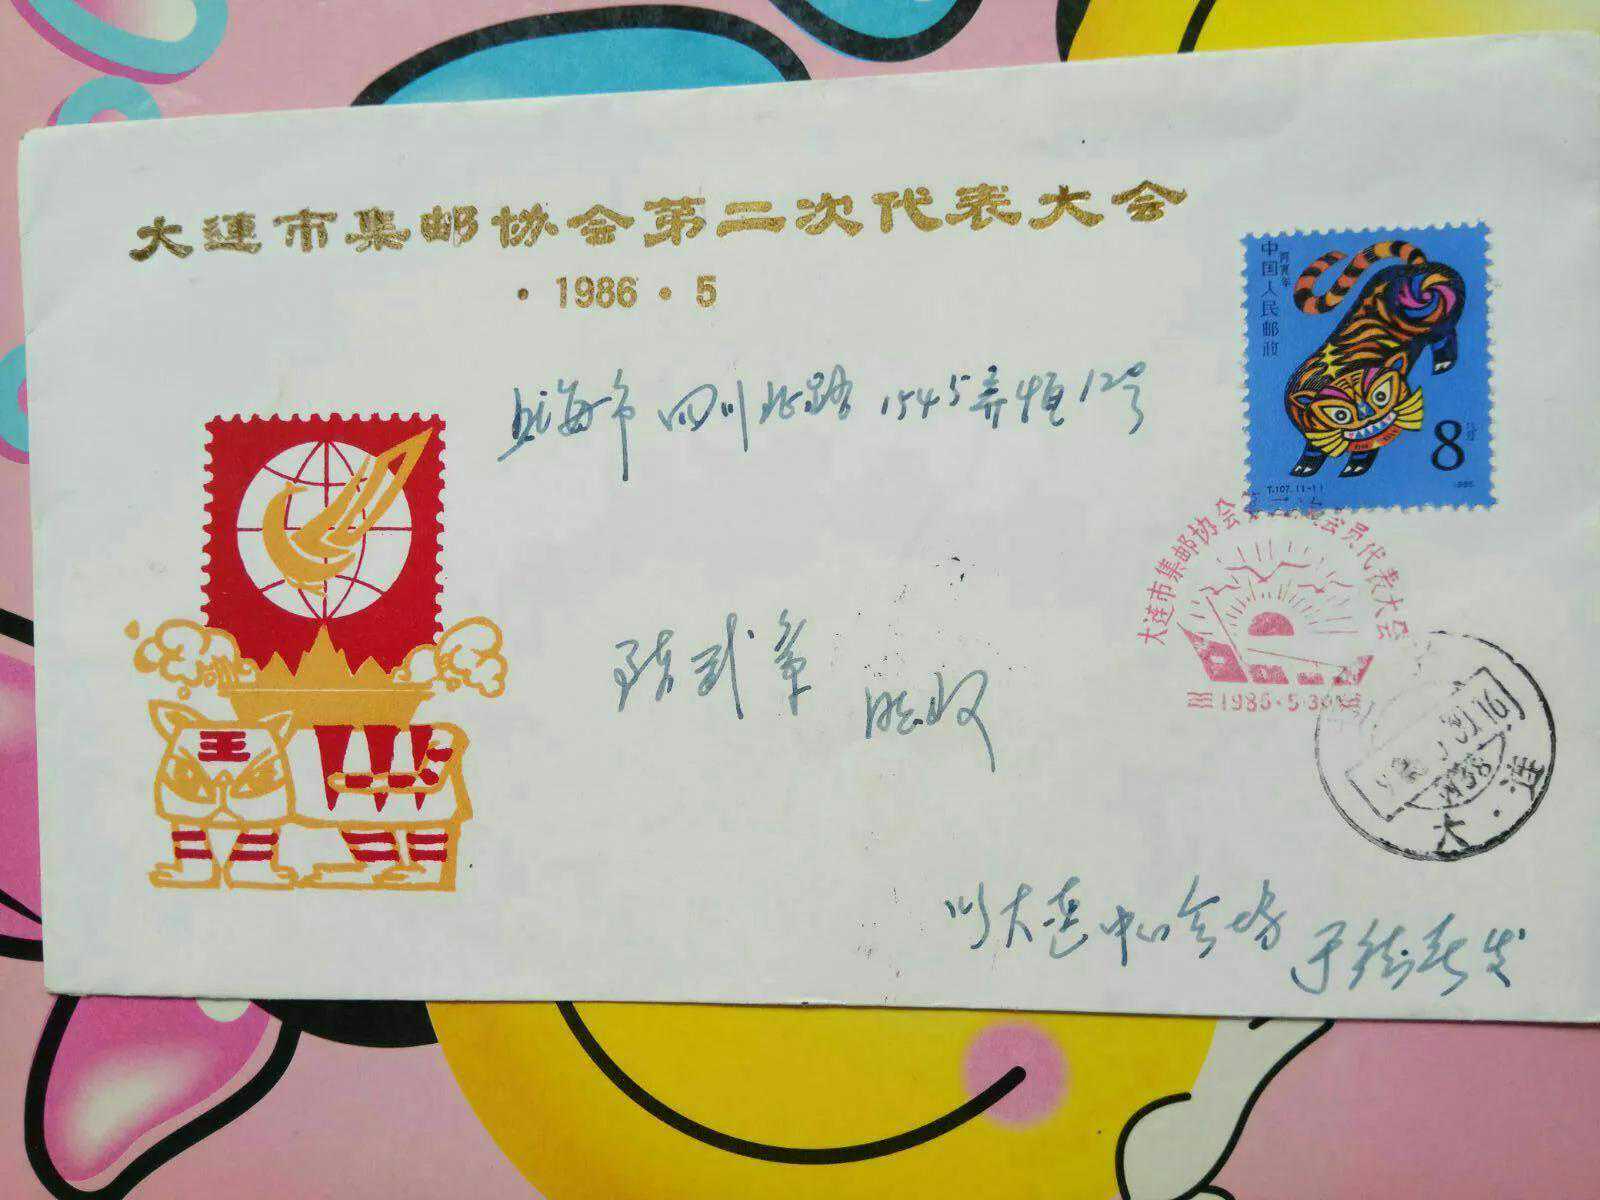 大連市集邮协会第二次代表大会
·1986·5
中国人民邮政
丙寅年
8分
T.107.(1-1)
1986
上海市四川北路1545弄恒12号
大连市集邮协会第二次会员代表大会
1986.5.30
陈武章
收
王
16
大·连
大连中心会场
发